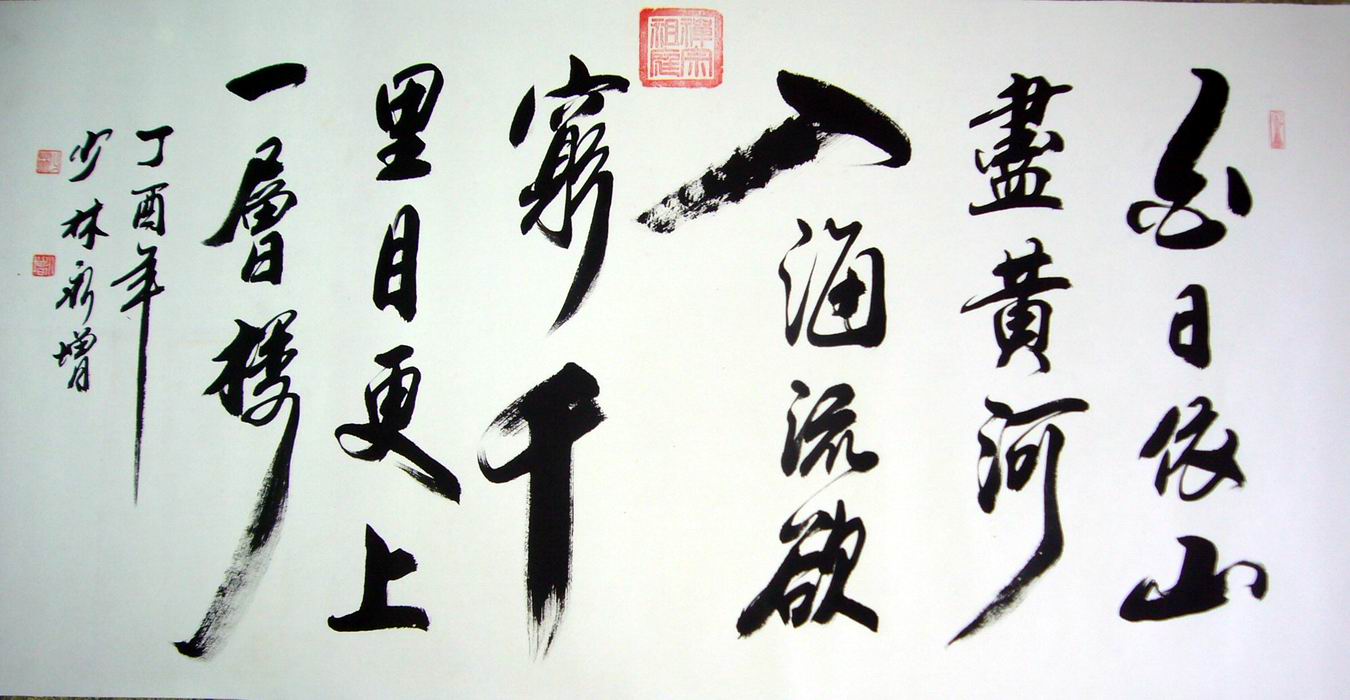 白日依山
盡黃河
入海流欲
窮千
里目更上
一層樓
丁酉年
少林增
禪宗
祖庭